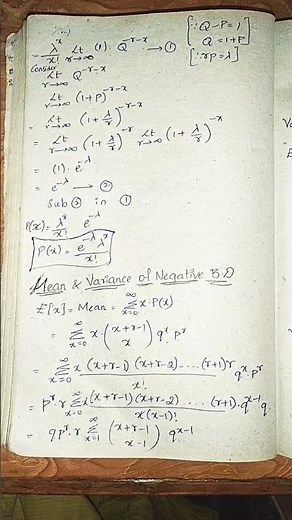 = λ^x/x! Lt r→∞ (1). Q^-r-x → ①
[∵ Q-P=1
Q = 1+P]
[∵ rp=λ]
Consider
Lt r→∞ Q^-r-x
= Lt r→∞ (1+P)^-r-x
= Lt r→∞ (1+λ/r)^-r-x
= Lt r→∞ (1+λ/r)^-r Lt r→∞ (1+λ/r)^-x
= (1). e^-λ
= e^-λ → ②
Sub ② in ①
P(x)= λ^x/x! e^-λ
P(x) = e^-λ λ^x/x!
Mean & Variance of Negative B.D
E[x] = Mean = ∞Σx=0 x.P(x)
= ∞Σx=0 x. (x+r-1 x) q^x p^r
= ∞Σx=0 x (x+r-1)(x+r-2)....(r+1)r/x! q^x.p^r
= p^r. r ∞Σx=0 x (x+r-1)(x+r-2)....(r+1)/x(x-1)! . q^x-1 q
= qp^r.r ∞Σx=1 (x+r-1 x-1) q^x-1